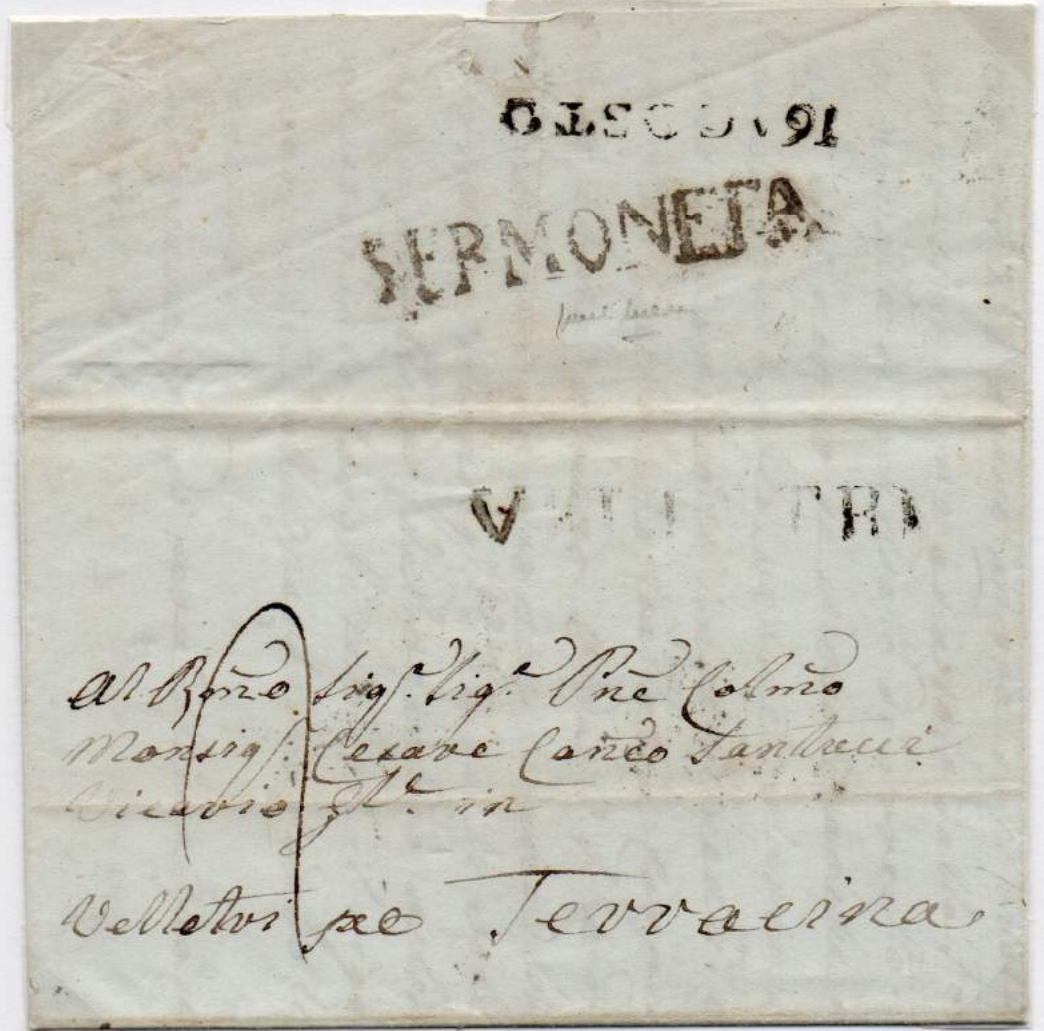 16 AGOSTO
SERMONETA
VELLETRI
Al Rm̃o Sigr. Sigr. Pñe Colm̃o
Monsigr. Cesare Canco Santucci
Vicario Gle. in
Velletri pe Terracina